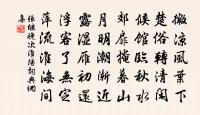 微涼風葉下
楚俗轉清閒
候館臨秋水
郊扉掩暮山
月明潮漸近
露濕雁初還
浮客了無定
萍流淮海間
張繼晚次淮陽詞典網
集